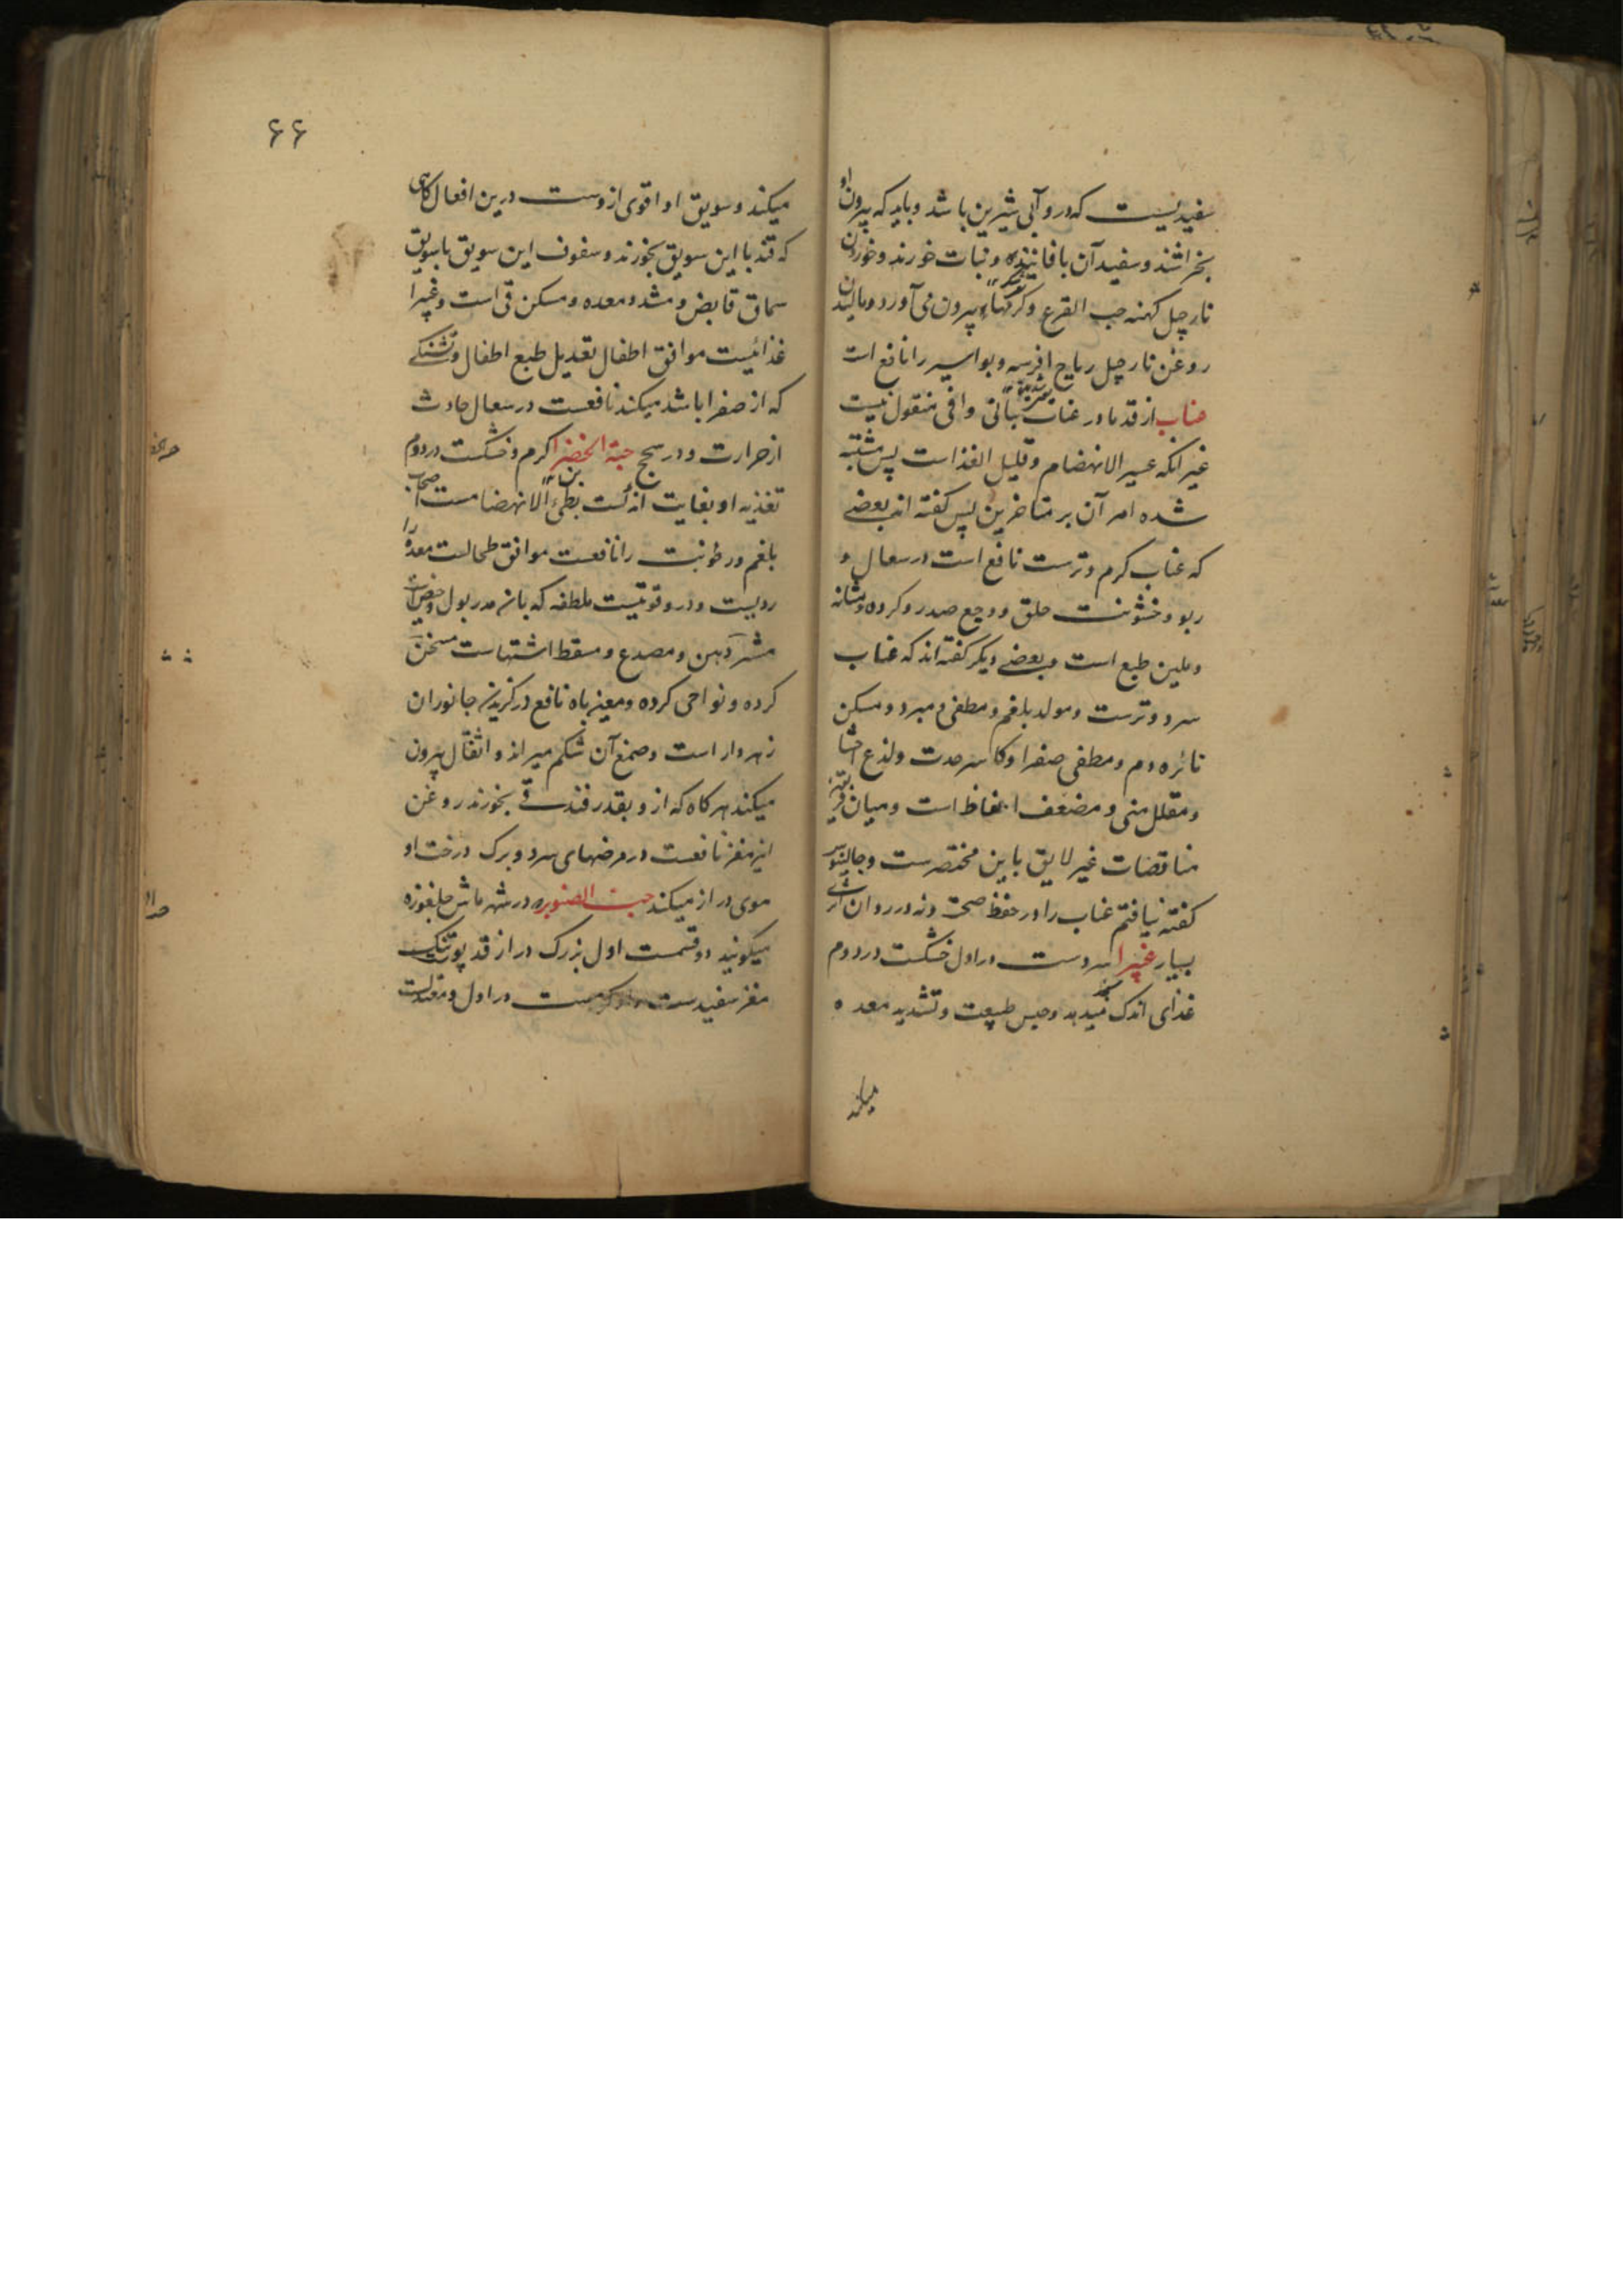 سفیدیست که درو آبی شیرین باشد و باید که بیرون او
بخراشند و سفید آن با فانید و نبات خورند و خوردن
نارجیل کهنه حب القرع و کرمها بیرون می آورد و مالیدن
روغن نارجیل ریاح افرسه و بواسیر را نافع است
عناب از قدما در عناب بیانی وافی منقول نیست
غیر انکه عسیر الانهضام و قلیل الغذاست پس مشتبه
شده امر آن بر متاخرین پس کفته اند بعضے
که عناب کرم و ترست نافع است در سعال و
ربو و خشونت حلق و وجع صدر و کرده و مثانه
و ملین طبع است و بعضے دیکر کفته اند که عناب
سرد و ترست و مولد بلغم و مطفی و مبرد و مسکن
نائره دم و مطفی صفرا و کاسر حدت و لذع احشا
و مقلل منی و مضعف انعاظ است و میان
مناقضات غیر لایق باین مختصرست و جالینوس
کفته نیافتم عناب را در حفظ صحت و نه در رد ان اثری
بسیار غبیرا سردست در اول خشکست در دوم
غذای اندک میدهد و حبس طبیعت و تشدید معده
میکند
۶۶
میکند و سویق او اقوی ازوست درین افعال کاهی
که قند با این سویق بخورند و سفوف این سویق با سویق
سماق قابض و مشدد معده و مسکن قی است و غبیرا
غذائیست موافق اطفال تعدیل طبع اطفال و تشنکے
که از صفرا باشد میکند نافعست در سعال حادث
از حرارت و در سحج حبة الخضرا کرم و خشکست در دوم
تغذیه او بغایت اندکست بطیء الانهضامست اصحاب
بلغم و رطوبت را نافعست موافق طحالست معده را
ردیست و درو قوتیست ملطفه که بانه مدر بول و حیض است
مبثر دهن و مصدع و مسقط اشتهاست مسخن
کرده و نواحی کرده و معین باه نافع در کزیدن جانوران
زهردار است و صمغ آن شکم میراند و اثقال بیرون
میکند هرکاه که ازو بقدر فندقے بخورند روغن
این مغز نافعست در مرضهای سرد و برک درخت او
موی دراز میکند حب الصنوبر در شهر ماش جلغوزه
میکویند دو قسمست اول بزرک دراز قد پوستنک
مغز سفیدست و کرمست در اول و معتدلست